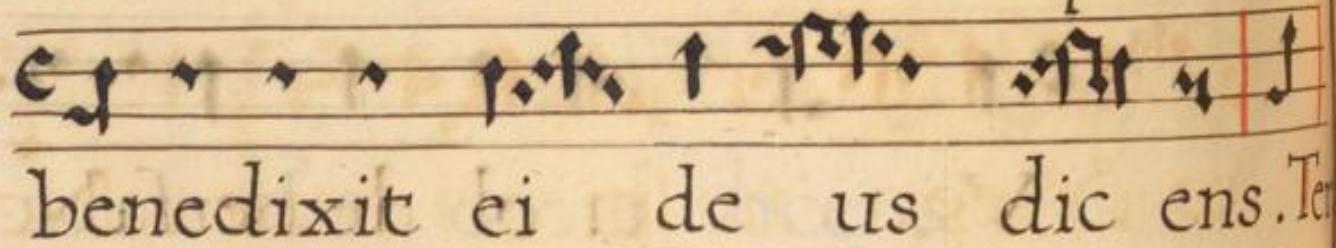 benedixit ei de us dic ens. Ter